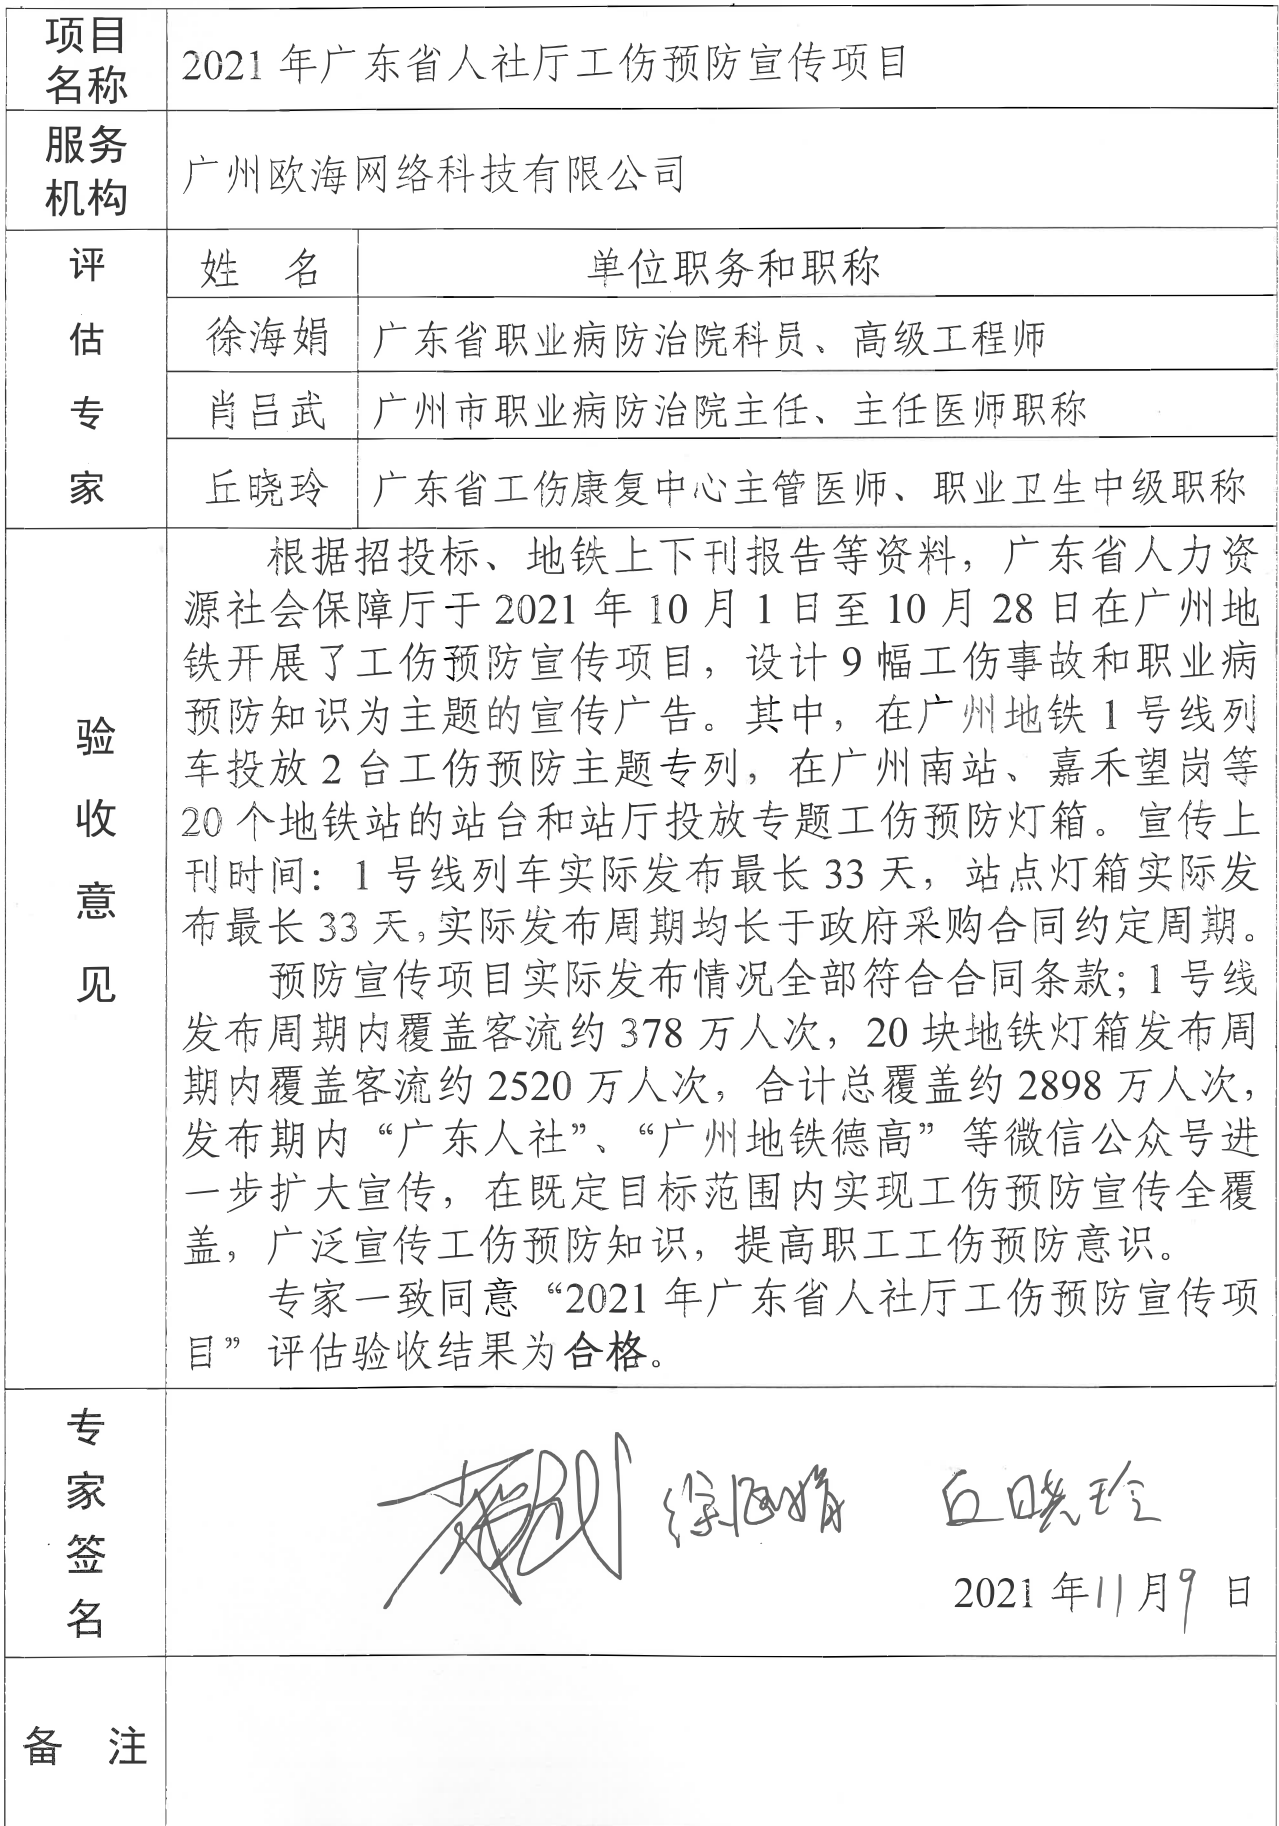 项目
名称
2021 年广东省人社厅工伤预防宣传项目
服务
机构
广州欧海网络科技有限公司
评
估
专
家
姓 名
单位职务和职称
徐海娟
广东省职业病防治院科员、高级工程师
肖吕武
广州市职业病防治院主任、主任医师职称
丘晓玲
广东省工伤康复中心主管医师、职业卫生中级职称
验
收
意
见
根据招投标、地铁上下刊报告等资料，广东省人力资
源社会保障厅于 2021 年 10 月 1 日至 10 月 28 日在广州地
铁开展了工伤预防宣传项目，设计 9 幅工伤事故和职业病
预防知识为主题的宣传广告。其中，在广州地铁 1 号线列
车投放 2 台工伤预防主题专列，在广州南站、嘉禾望岗等
20 个地铁站的站台和站厅投放专题工伤预防灯箱。宣传上
刊时间：1 号线列车实际发布最长 33 天，站点灯箱实际发
布最长 33 天，实际发布周期均长于政府采购合同约定周期。
预防宣传项目实际发布情况全部符合合同条款；1 号线
发布周期内覆盖客流约 378 万人次，20 块地铁灯箱发布周
期内覆盖客流约 2520 万人次，合计总覆盖约 2898 万人次，
发布期内“广东人社”、“广州地铁德高”等微信公众号进
一步扩大宣传，在既定目标范围内实现工伤预防宣传全覆
盖，广泛宣传工伤预防知识，提高职工工伤预防意识。
专家一致同意“2021 年广东省人社厅工伤预防宣传项
目”评估验收结果为合格。
专
家
签
名
肖吕武 徐海娟 丘晓玲
2021 年 11 月 9 日
备 注